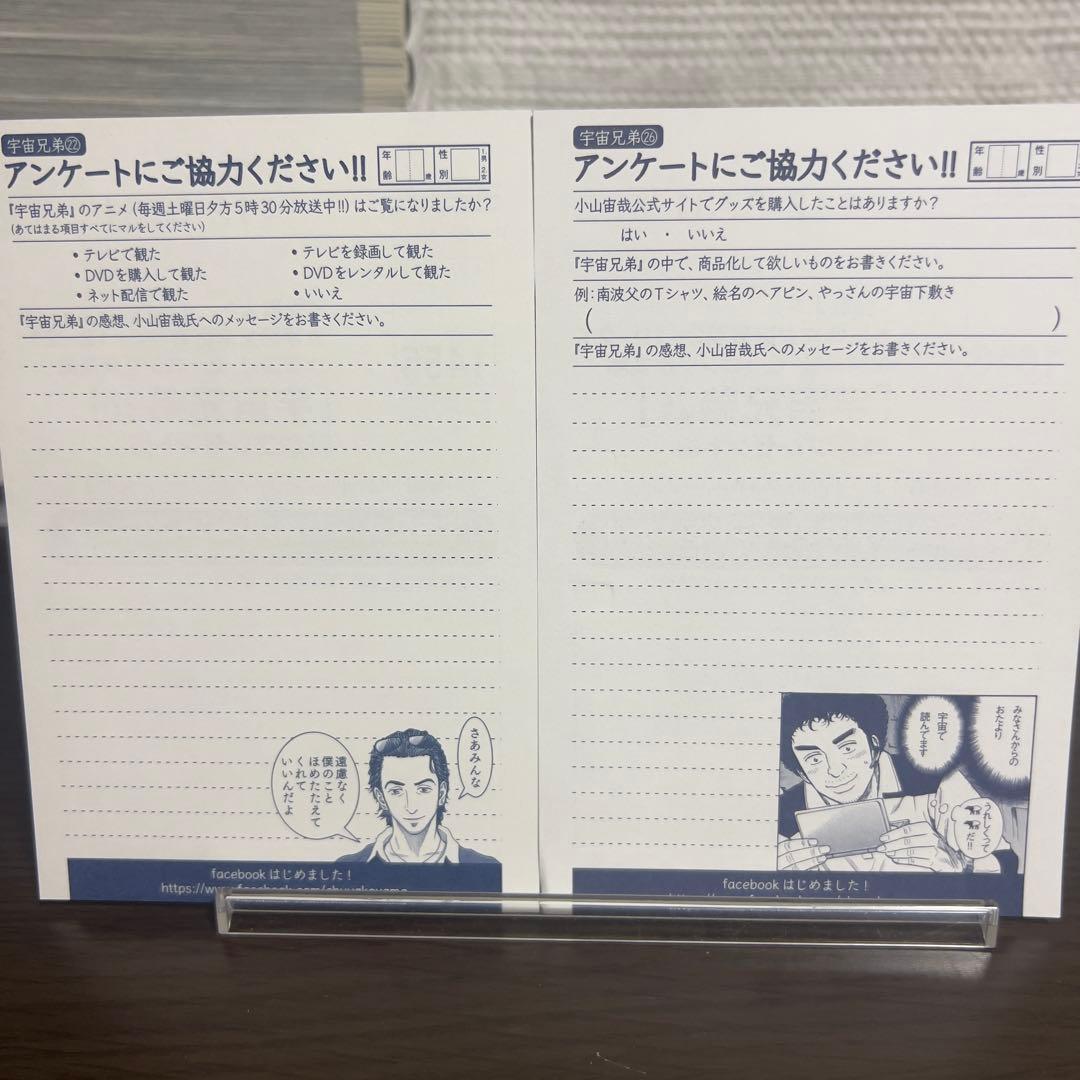 宇宙兄弟㉒
アンケートにご協力ください!!
年齢
歳
性別
1.男
2.女
『宇宙兄弟』のアニメ(毎週土曜日夕方5時30分放送中!!)はご覧になりましたか?
(あてはまる項目すべてにマルをしてください)
・テレビで観た
・テレビを録画して観た
・DVDを購入して観た
・DVDをレンタルして観た
・ネット配信で観た
・いいえ
『宇宙兄弟』の感想、小山宙哉氏へのメッセージをお書きください。
さあみんな
遠慮なく
僕のこと
ほめたたえて
くれて
いいんだよ
facebookはじめました!
宇宙兄弟㉖
アンケートにご協力ください!!
年齢
歳
性別
小山宙哉公式サイトでグッズを購入したことはありますか?
はい ・ いいえ
『宇宙兄弟』の中で、商品化して欲しいものをお書きください。
例:南波父のTシャツ、絵名のヘアピン、やっさんの宇宙下敷き
( )
『宇宙兄弟』の感想、小山宙哉氏へのメッセージをお書きください。
みなさんからの
おたより
宇宙で
読んでます
うれしくって
だ!!
facebookはじめました!